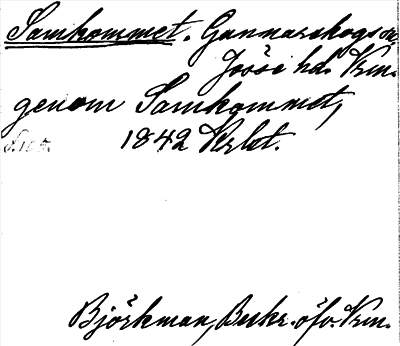 Samkommet. Gunnarskogs sn,
Jösse hd. Vrm.
genom Samkommet,
1842 Krlst.
Björkman, Beskr. öfv. Vrm.